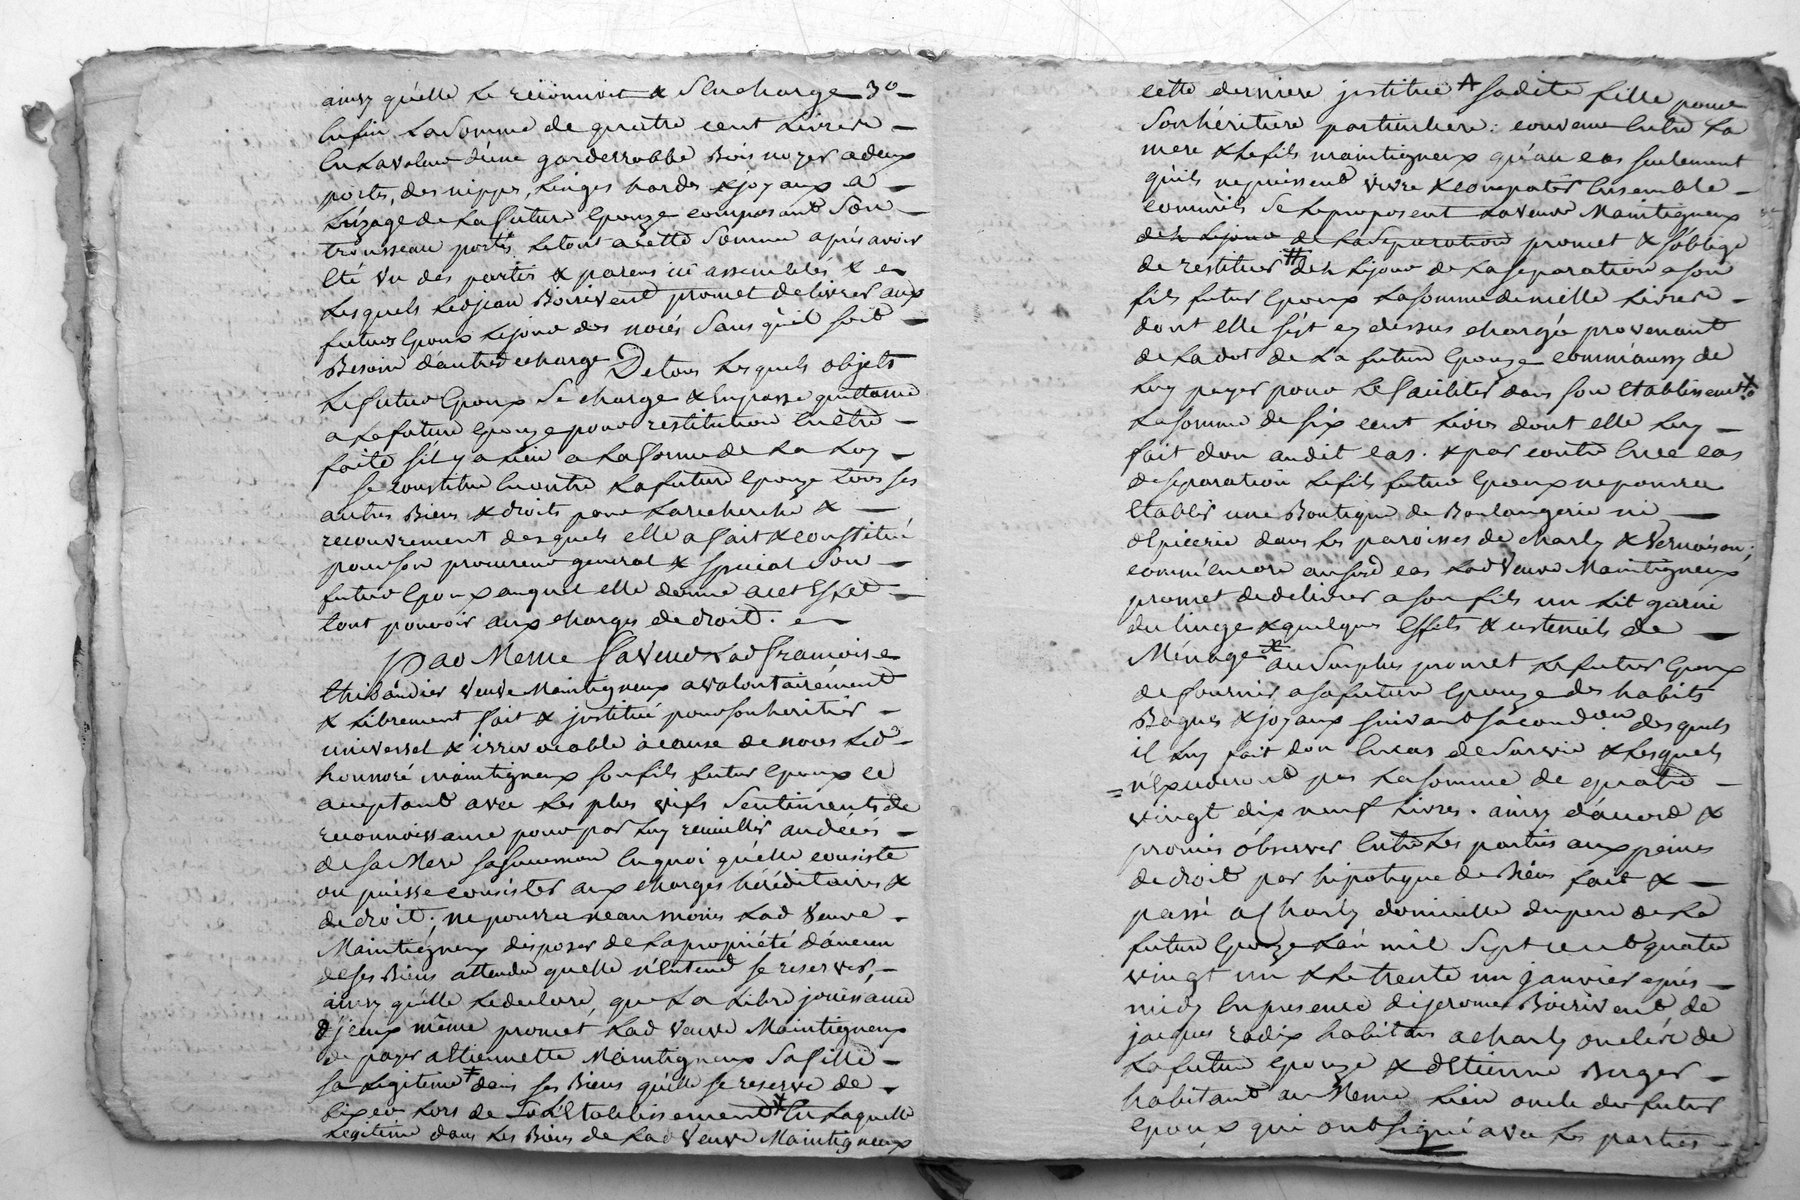 ainsy qu'elle le reconnoit & s'en charge 3°
Enfin la somme de quatre cent livres
En la valeur d'une garderrobbe Bois noyer a deux
portes, des nippes, linges hardes & joyaux a
l'uzage de la future Epouze composant son
trousseau portés le tout a cette somme après avoir
Eté vu des partis & parens ici assemblés &
lesquels ledjean Boirivent promet delivrer aux
futurs Epoux le jour des noces sans qu'il soit
Besoin d'autre charge De tous lesquels objets
le futur Epoux se charge & En passe quittance
a la future Epouze pour restitution En être
faite s'il y a lieu a la forme de la loy
se constitue En outre la future Epouze tous ses
autres Biens & droits pour la recherche &
recouvrement desquels elle a fait & constitué
pour son procureur general & special son
futur Epoux auquel elle donne a cet Effet
tout pouvoir aux charges de droit.
Par Meme faveur lad françoise
thibaudier veuve Maintigneux a volontairement
& librement fait & jnstitué pour son heritier
universel & irrevocable à cause de noces led
honnoré maintigneux son fils futur Epoux ce
acceptant avec les plus vifs sentiments de
reconnoissance pour par luy recueillir au décés
de sa Mere sa succession En quoi qu'elle consiste
ou puisse consister aux charges héréditaires &
de droit; ne pourra neanmoins lad veuve
Maintigneux disposer de la propriété d'aucun
de ses Biens attendu quelle n'Entend se reserver,
ainsy qu'elle le declare, que la libre jouissance
d'jceux même promet lad veuve Maintigneux
de payer a Etiennette Maintigneux sa fille
sa legitime dans ses Biens qu'elle se reserve de
fixer lors de son Etablissement En laquelle
legitime dans les Biens de lad veuve Maintigneux
cette derniere jnstitue sadite fille pour
son héritiere particuliere: convenu Entre la
mere & le fils maintigneux qu'au cas seulement
qu'ils ne puissent vivre & compatir Ensemble
comm'ils se le proposent la veuve Maintigneux
des le jour de la separation promet & s'oblige
de restituer des le jour de la separation a son
fils futur Epoux la somme de mille livres
dont elle s'est cy dessus chargée provenant
de la dot de la future Epouze comm'aussy de
luy payer pour le faciliter dans son Etablissement
la somme de six cent livres dont elle luy
fait don audit cas. & par contre En ce cas
de separation le fils futur Epoux ne pourra
Etablir une Boutique de Boulangerie ni
d'Epicerie dans les paroisses de charly & vernaison;
comm'encore au susd cas lad veuve Maintigneux
promet de delivrer a son fils un lit garni
du linge & quelques Effets & ustensils de
Ménage au surplus promet le futur Epoux
de fournir a sa future Epouze des habits
Bagues & joyaux suivant sa condon desquels
il luy fait don En cas de survie & lesquels
n'Excederont pas la somme de quatre
vingt dix neuf livres. ainsy d'accord &
promis observer Entre les parties aux peines
de droit par hipoteque de Biens fait &
passé a Charly domicille du pere de la
future Epouze l'an mil sept cent quatre
vingt un & le trente un janvier après
midy En presence de jerome Boirivent, de
jacques radix habitans a charly oncles de
la future Epouze & d'Etienne Berger
habitant au Meme lieu oncle du futur
Epoux qui ont signé avec les parties